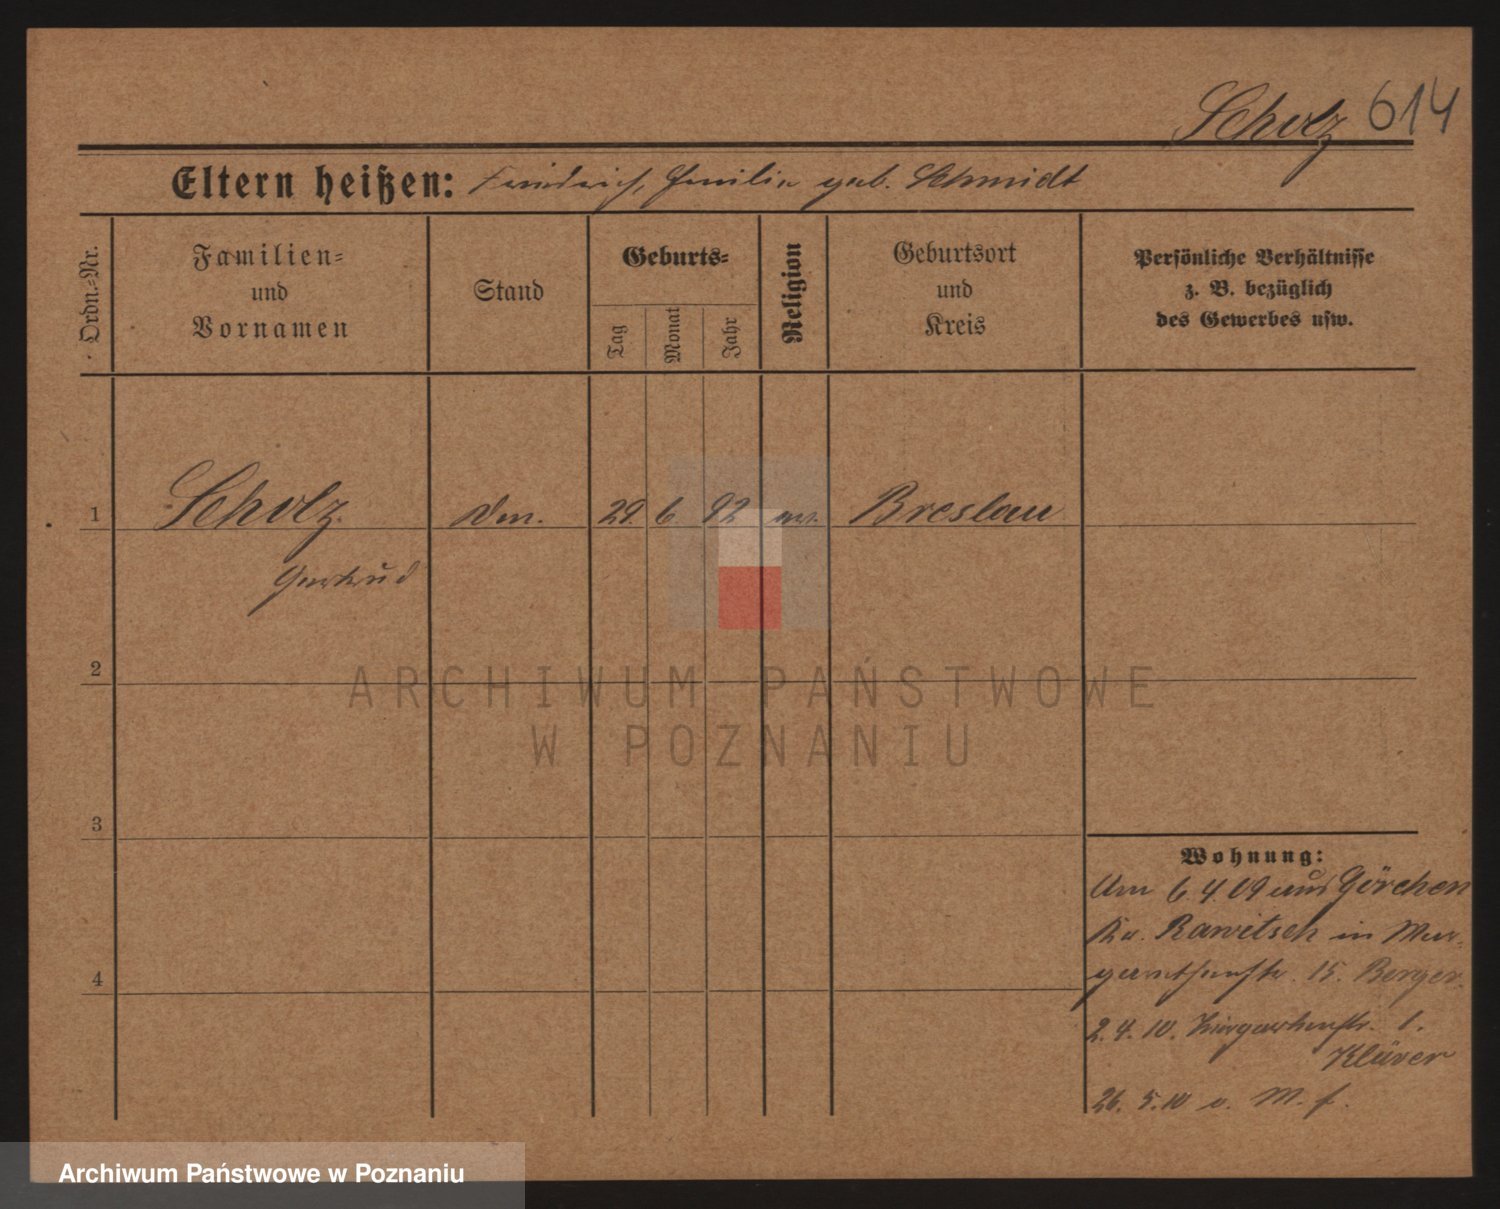 Scholz 614
Eltern heißen: Friedrich, Emilie geb. Schmidt
Ordn.-Nr.
Familien- und Vornamen
Stand
Geburts-
Tag
Monat
Jahr
Religion
Geburtsort und Kreis
Persönliche Verhältnisse
z. B. bezüglich
des Gewerbes usw.
1 Scholz. 29. 6 92 ev. Breslau
Gertrud
2
3
4
Wohnung:
Am 6.4.09 aus Görchen
Kr. Rawitsch in Mar-
garethenstr. 15. Berger.
2.4.10. 1.
Klüver
26. 5.10 v. M. f.
ARCHIWUM PAŃSTWOWE
W POZNANIU
Archiwum Państwowe w Poznaniu